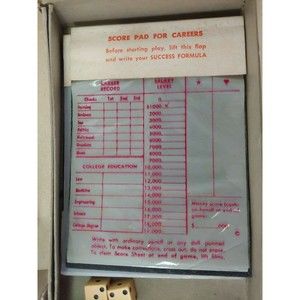 SCORE PAD FOR CAREERS
Before starting play, lift this flap
and write your SUCCESS FORMULA
CAREER RECORD
SALARY LEVEL
★
♥
Checks 1st 2nd 3rd
Farming
Business
Sea
Politics
Hollywood
Uranium
Moon
COLLEGE EDUCATION
Law
Medicine
Engineering
Science
College Degree
$1000
2000
3000
4000
5000
6000
7000
8000
9000
10,000
11,000
12,000
13,000
14,000
15,000
16,000
17,000
18,000
Write with ordinary pencil or any dull pointed
object. To make corrections, cross out, do not erase.
To clean Score Sheet at end of game, lift films.